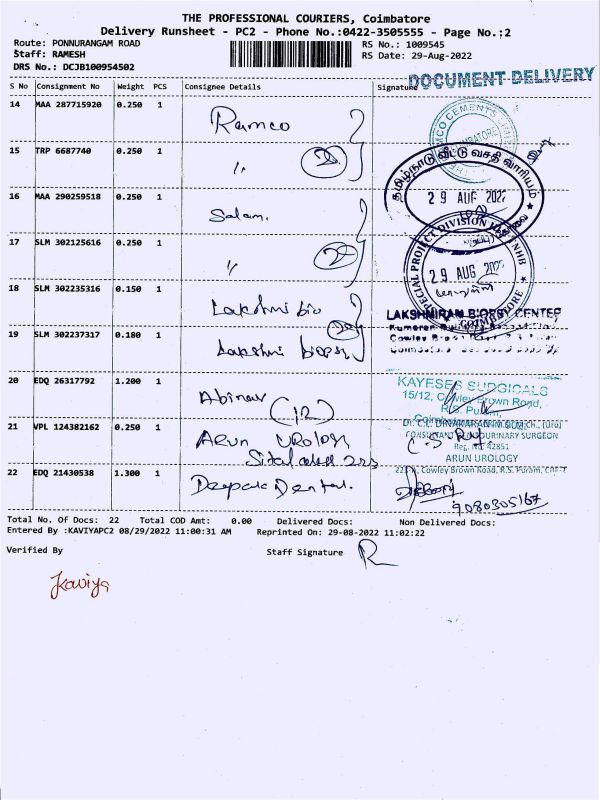 THE PROFESSIONAL COURIERS, Coimbatore
Delivery Runsheet - PC2 - Phone No.:0422-3505555 - Page No.:2
Route: PONNURANGAM ROAD RS No.: 1009545
Staff: RAMESH RS Date: 29-Aug-2022
DRS No.: DCJB100954502
DOCUMENT DELIVERY
S No Consignment No Weight PCS Consignee Details Signature
14 MAA 287715920 0.250 1 Ramco
15 TRP 6687740 0.250 1 〃 2
தமிழ்நாடு வீட்டு வசதி வாரியம்
29 AUG 2022
16 MAA 290259518 0.250 1 Salam.
17 SLM 302125616 0.250 1 〃 2
SPECIAL PROJECT DIVISION TNHB
29 AUG 2022
COIMBATORE
18 SLM 302235316 0.150 1 Lakshmi bio
LAKSHMIRAM BIOPSY CENTER
19 SLM 302237317 0.180 1 Lakshmi biopsy
20 EDQ 26317792 1.200 1 Abinav (12)
KAYESES SURGICALS
15/12, Cowley Brown Road,
R.S. Puram,
21 VPL 124382162 0.250 1 Arun Urology
CONSULTANT GENITOURINARY SURGEON
Reg. No. 42851
ARUN UROLOGY
Cowley Brown Road, R.S. Puram, CBE-2
22 EDQ 21430538 1.300 1 Deepak Dental.
9080305167
Total No. Of Docs: 22 Total COD Amt: 0.00 Delivered Docs: Non Delivered Docs:
Entered By :KAVIYAPC2 08/29/2022 11:00:31 AM Reprinted On: 29-08-2022 11:02:22
Verified By Staff Signature
Kaviya